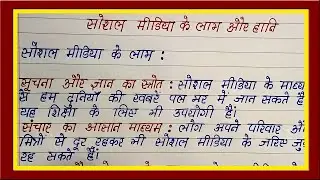 सोशल मीडिया के लाभ और हानि
सोशल मीडिया के लाभ :
सूचना और ज्ञान का स्रोत : सोशल मीडिया के माध्य
से हम दुनियाँ की खबरें पल भर में जान सकते हैं
यह शिक्षा के लिए भी उपयोगी है।
संचार का आसान माध्यम : लोग अपने परिवार औ
मित्रों से दूर रहकर भी सोशल मीडिया के जरिए जु
रह सकते हैं।